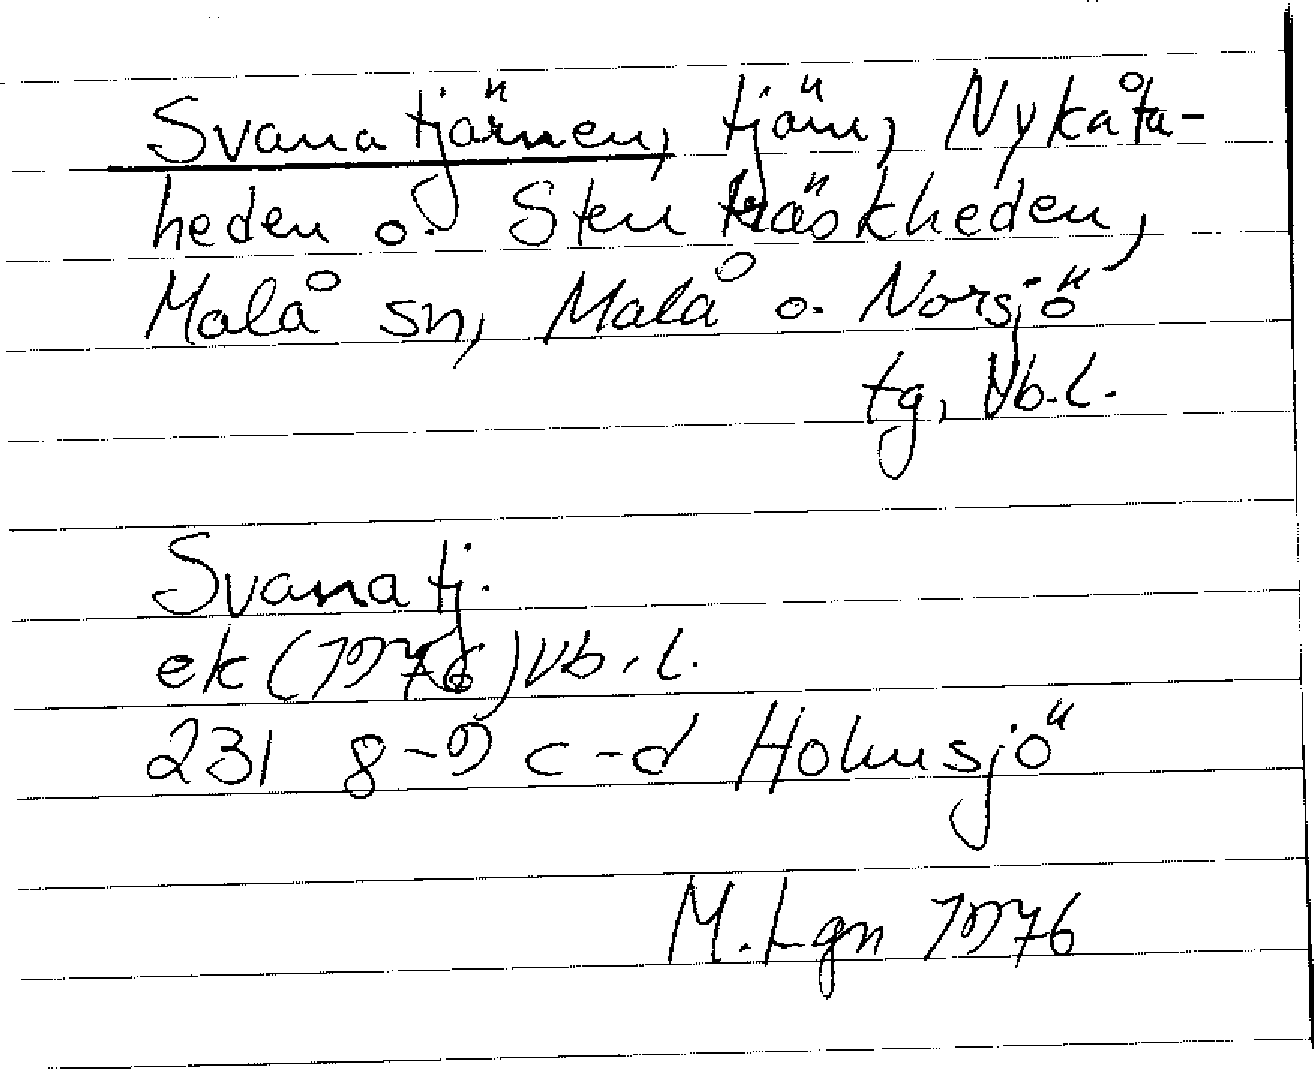 Svanatjärnen, tjärn, Nykåta-
heden o. Stenträskheden,
Malå sn, Malå o. Norsjö
tg, Vb.l.
Svanatj.
ek (1976) Vb.l.
231 8-9 c-d Holmsjö
M. Lgn 1976